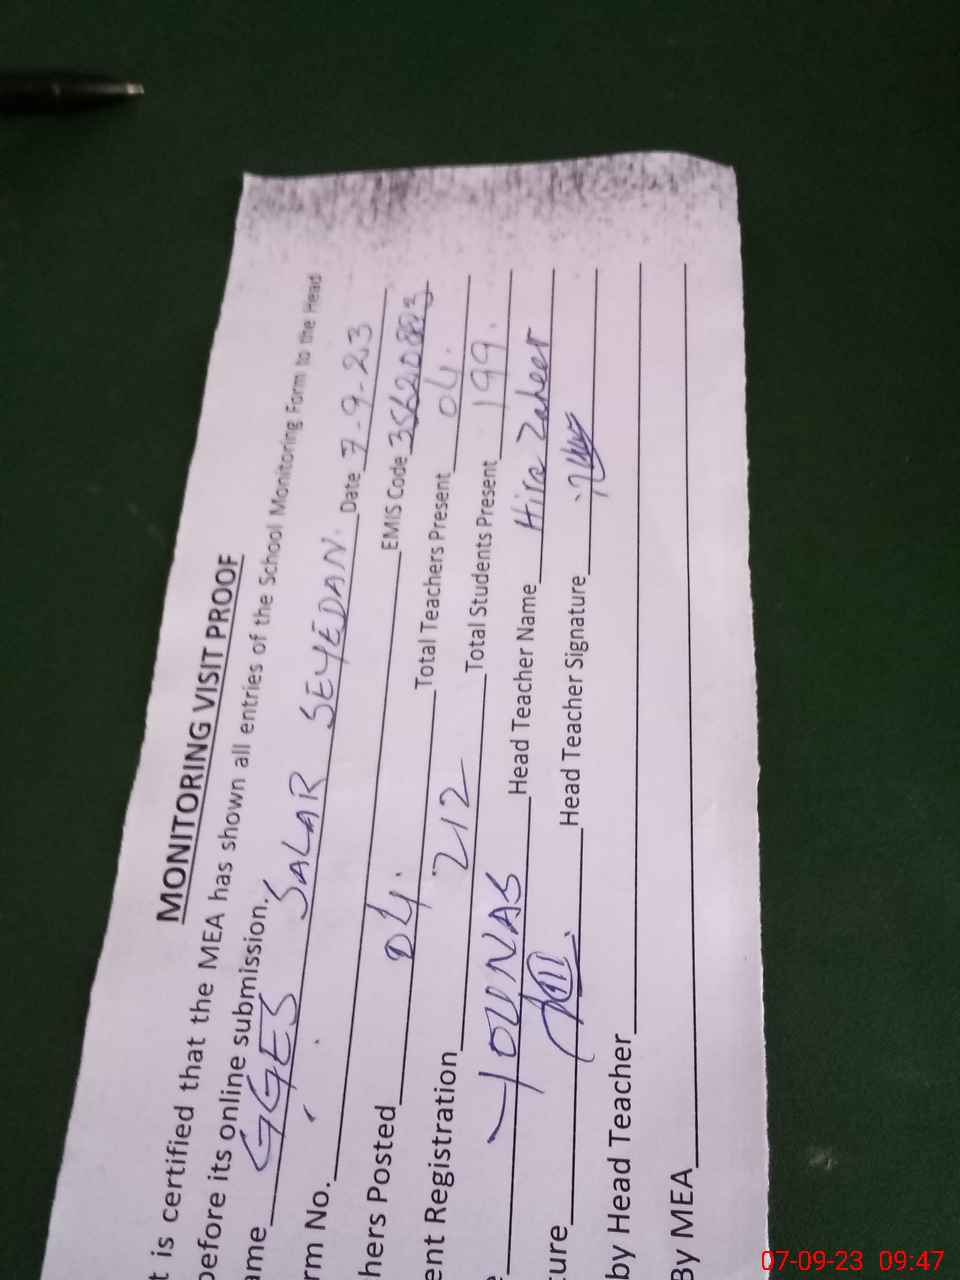 MONITORING VISIT PROOF
t is certified that the MEA has shown all entries of the School Monitoring Form to the Head
before its online submission.
ame GGES SALAR SEYEDAN. Date 7-9-23
rm No. EMIS Code
hers Posted 04. Total Teachers Present 04.
ent Registration 212 Total Students Present 199.
e YOUNAS Head Teacher Name Hira Zaheer
ture Head Teacher Signature
by Head Teacher
By MEA
07-09-23 09:47